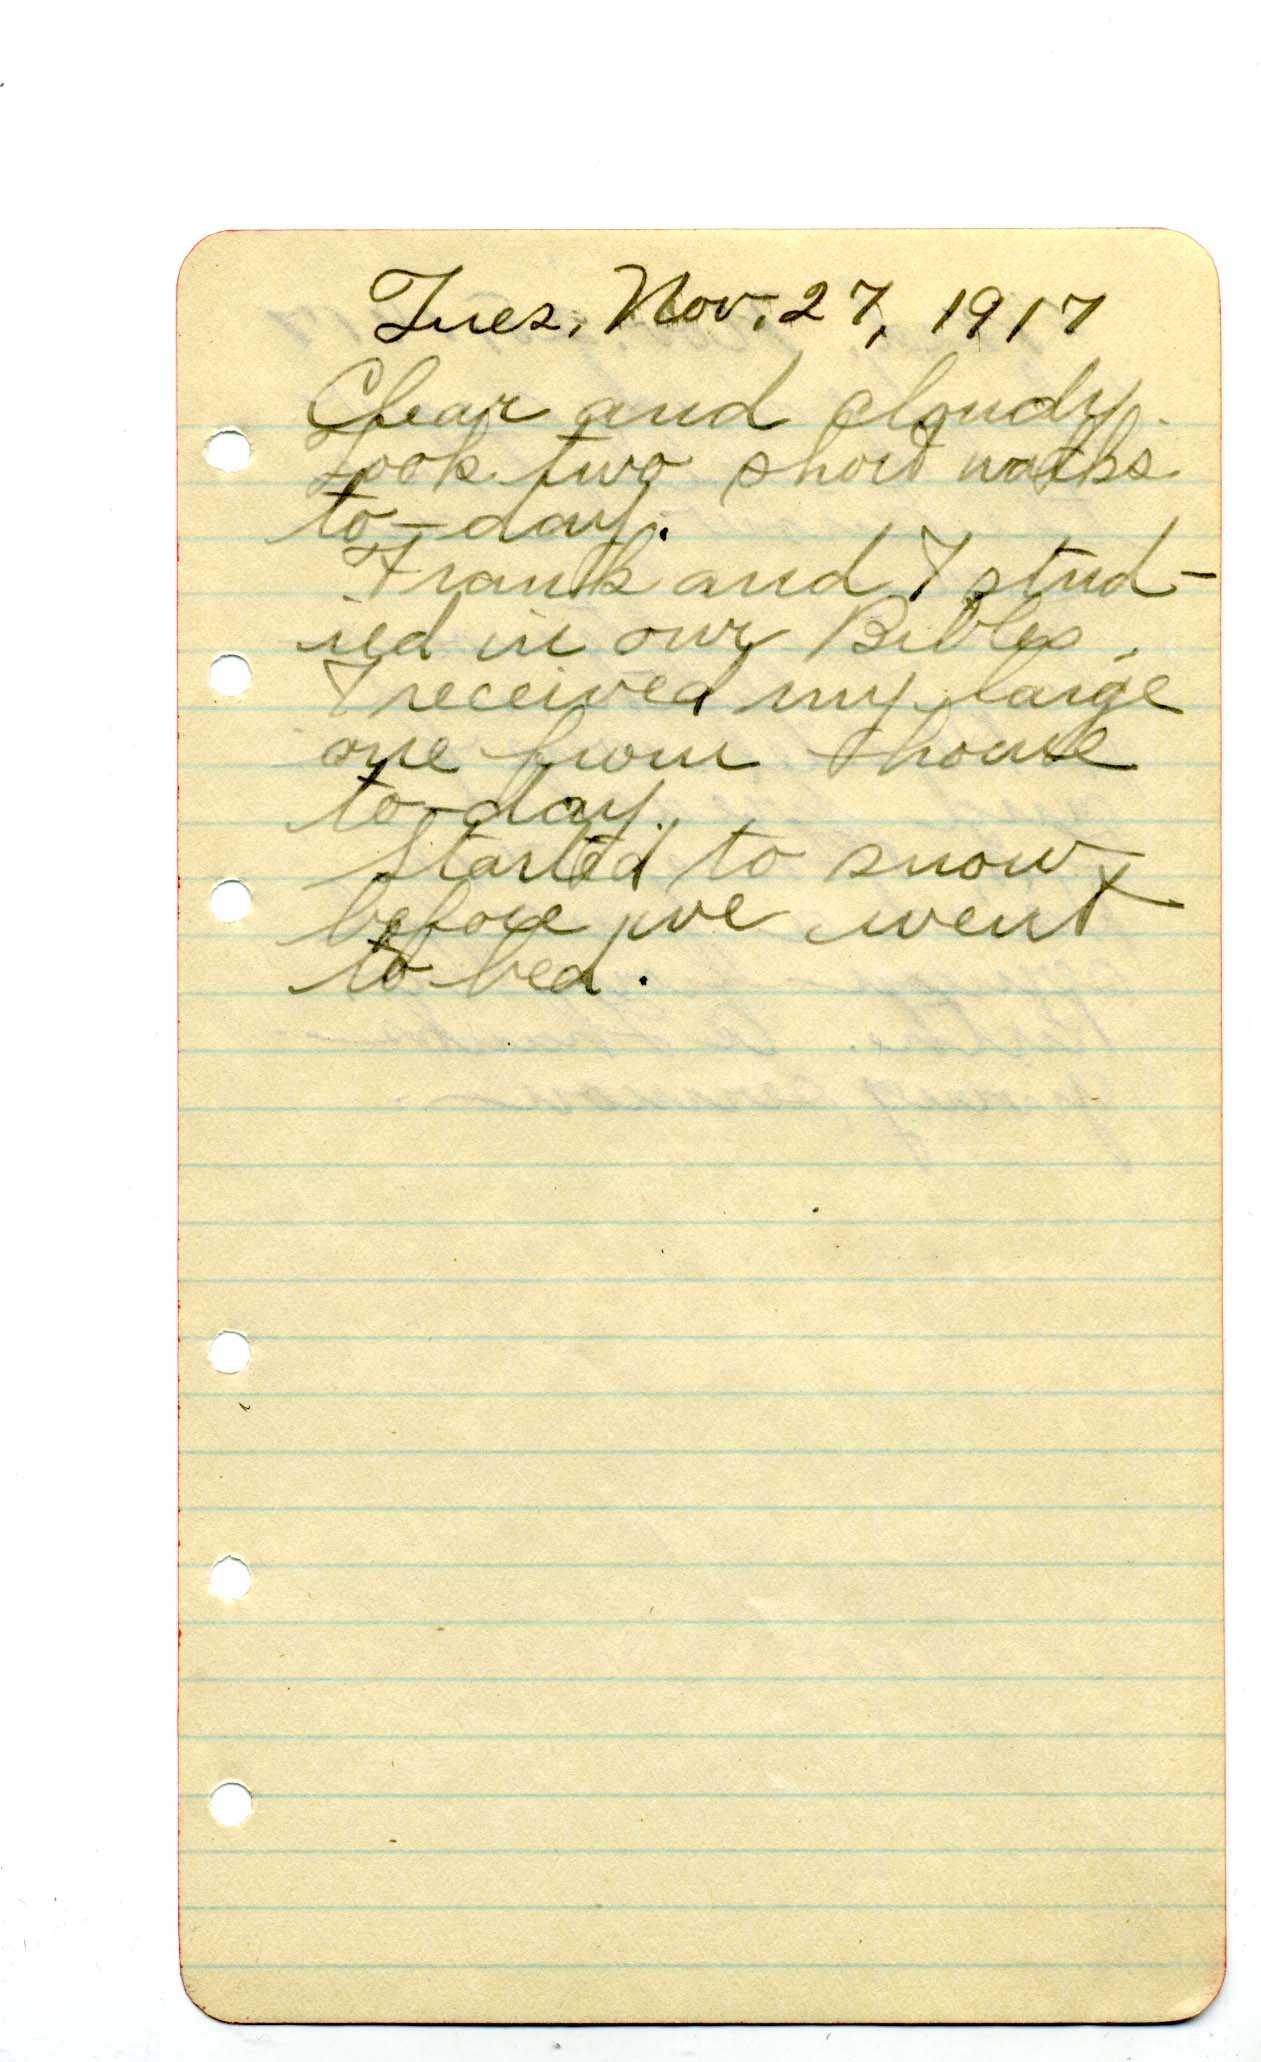 Tues. Nov. 27, 1917
Clear and cloudy.
Took two short walks
to-day.
Frank and I stud-
ied in our Bibles.
I received my large
one from home
to-day.
Started to snow
before we went
to bed.